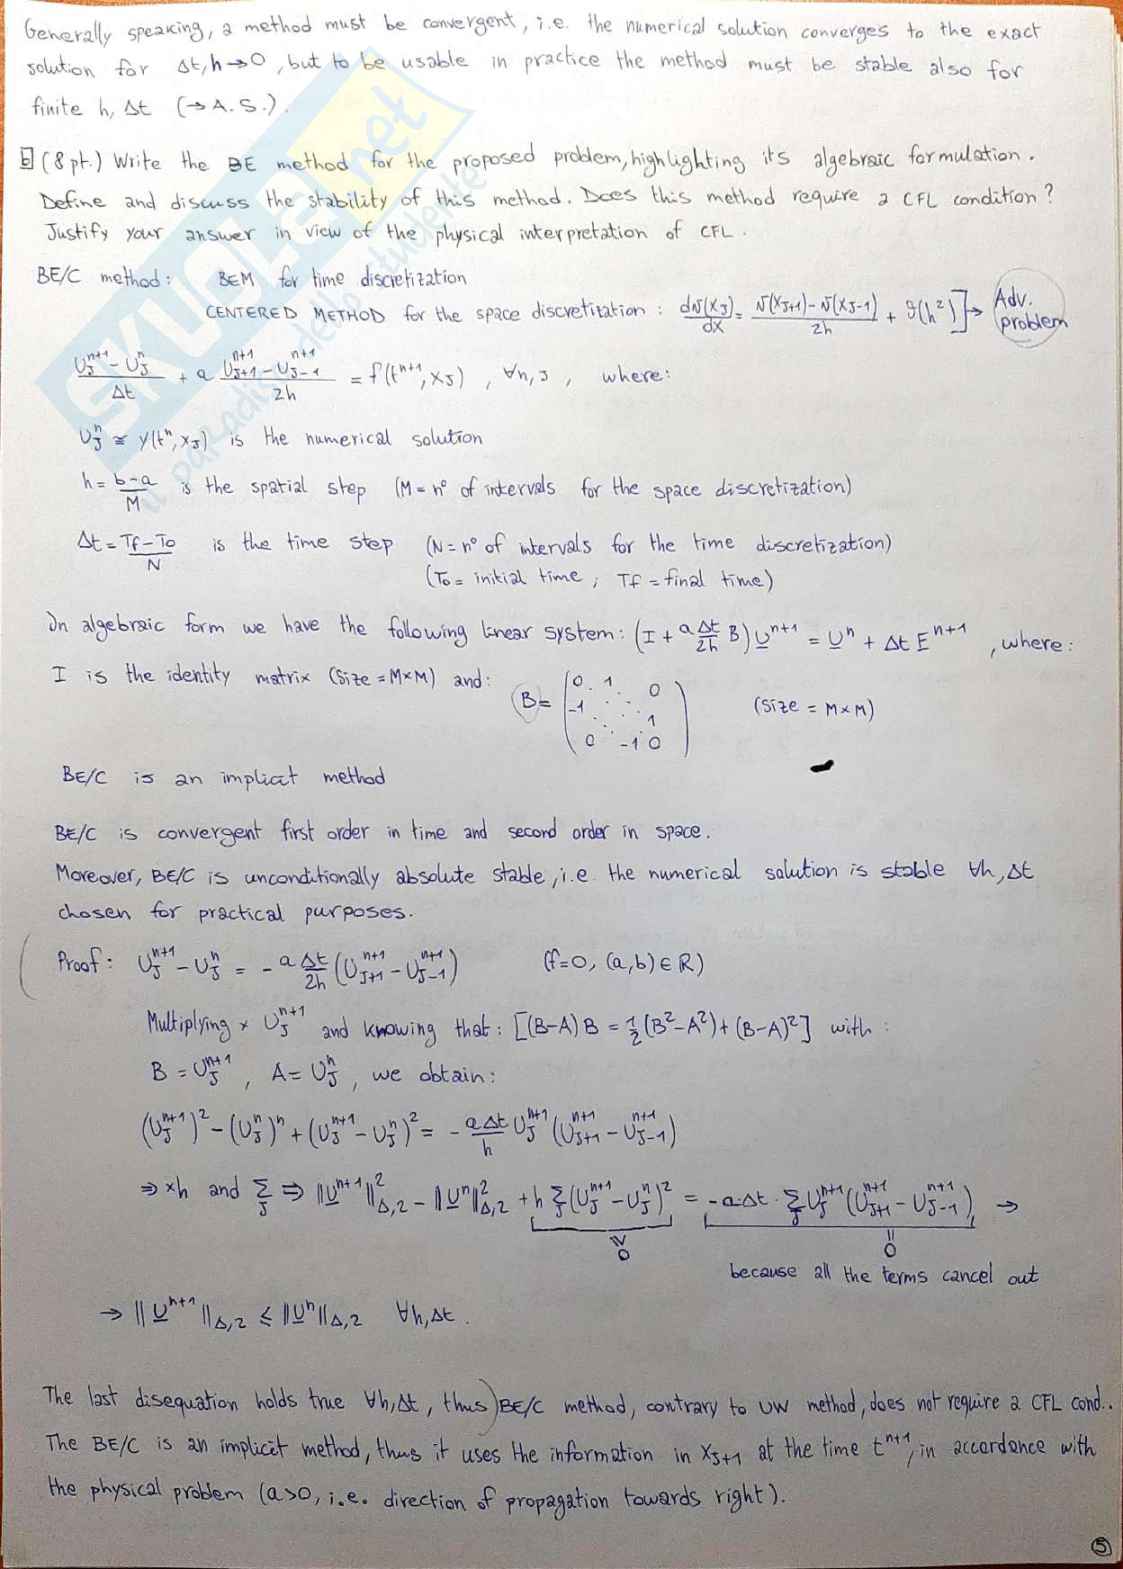 Generally speaking, a method must be convergent, i.e. the numerical solution converges to the exact
solution for Δt, h→0, but to be usable in practice the method must be stable also for
finite h, Δt (→ A.S.).
b) (8 pt.) Write the BE method for the proposed problem, highlighting its algebraic formulation.
Define and discuss the stability of this method. Does this method require a CFL condition?
Justify your answer in view of the physical interpretation of CFL.
BE/C method: BEM for time discretization
CENTERED METHOD for the space discretization: dv(x_J)/dx = (v(x_J+1) - v(x_J-1))/2h + O(h²)] → Adv. problem
(U_J^n+1 - U_J^n)/Δt + a (U_J+1^n+1 - U_J-1^n+1)/2h = f(t^n+1, x_J), ∀n, J, where:
U_J^n ≅ y(t^n, x_J) is the numerical solution
h = (b-a)/M is the spatial step (M = n° of intervals for the space discretization)
Δt = (Tf - To)/N is the time step (N = n° of intervals for the time discretization)
(To = initial time; Tf = final time)
In algebraic form we have the following linear system: (I + a Δt/2h B) U^n+1 = U^n + Δt F^n+1, where:
I is the identity matrix (size = M×M) and: B = (0 1 0 -1 1 0 -1 0) (size = M×M)
BE/C is an implicit method
BE/C is convergent first order in time and second order in space.
Moreover, BE/C is unconditionally absolute stable, i.e. the numerical solution is stable ∀h, Δt
chosen for practical purposes.
Proof: U_J^n+1 - U_J^n = - a Δt/2h (U_J+1^n+1 - U_J-1^n+1) (f=0, (a,b) ∈ R)
Multiplying × U_J^n+1 and knowing that: [(B-A)B = 1/2(B²-A²)+(B-A)²] with:
B = U_J^n+1, A = U_J^n, we obtain:
(U_J^n+1)² - (U_J^n)^n + (U_J^n+1 - U_J^n)² = - aΔt/h U_J^n+1 (U_J+1^n+1 - U_J-1^n+1)
⇒ ×h and Σ_J ⇒ ||U^n+1||²_Δ,2 - ||U^n||²_Δ,2 + h Σ_J (U_J^n+1 - U_J^n)² = -a·Δt · Σ_J U_J^n+1 (U_J+1^n+1 - U_J-1^n+1) →
≥ 0
= 0
because all the terms cancel out
→ ||U^n+1||_Δ,2 ≤ ||U^n||_Δ,2 ∀h, Δt.
The last disequation holds true ∀h, Δt, thus) BE/C method, contrary to UW method, does not require a CFL cond..
The BE/C is an implicit method, thus it uses the information in x_J+1 at the time t^n+1, in accordance with
the physical problem (a>0, i.e. direction of propagation towards right).
5
SKUOLA.net
il paradiso dello studente